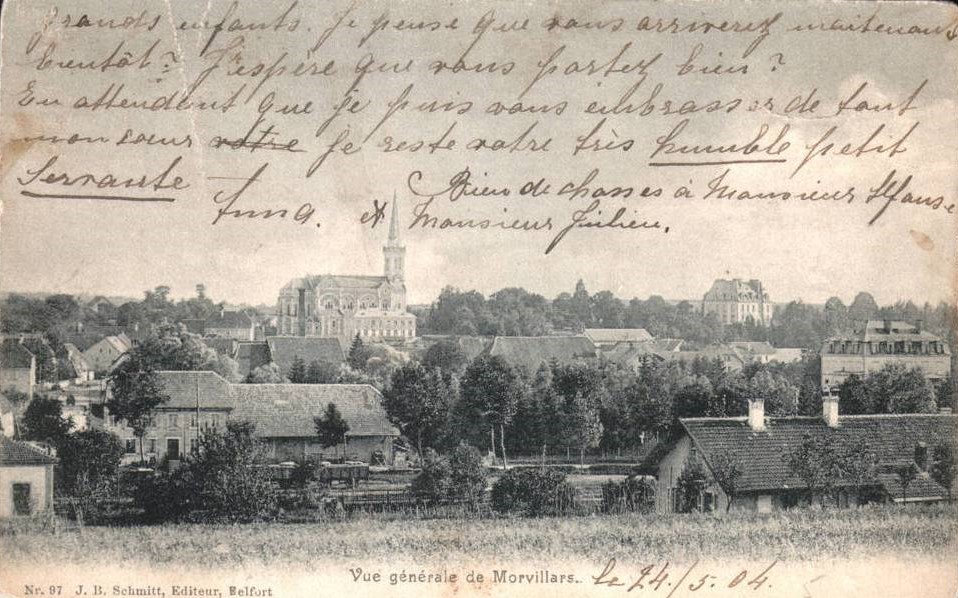 grands enfants. Je pense que vous arriverez maitenant
bientôt? J'espère que vous portez bien?
En attendant que je puis vous embrasser de tout
mon cœur votre je reste votre très humble petit
Servante — Anna.
Bien de chasses à Monsieur Alfonse
et Monsieur Julien.
Vue générale de Morvillars.
le 24./5.04.
Nr. 97 J. B. Schmitt, Editeur, Belfort